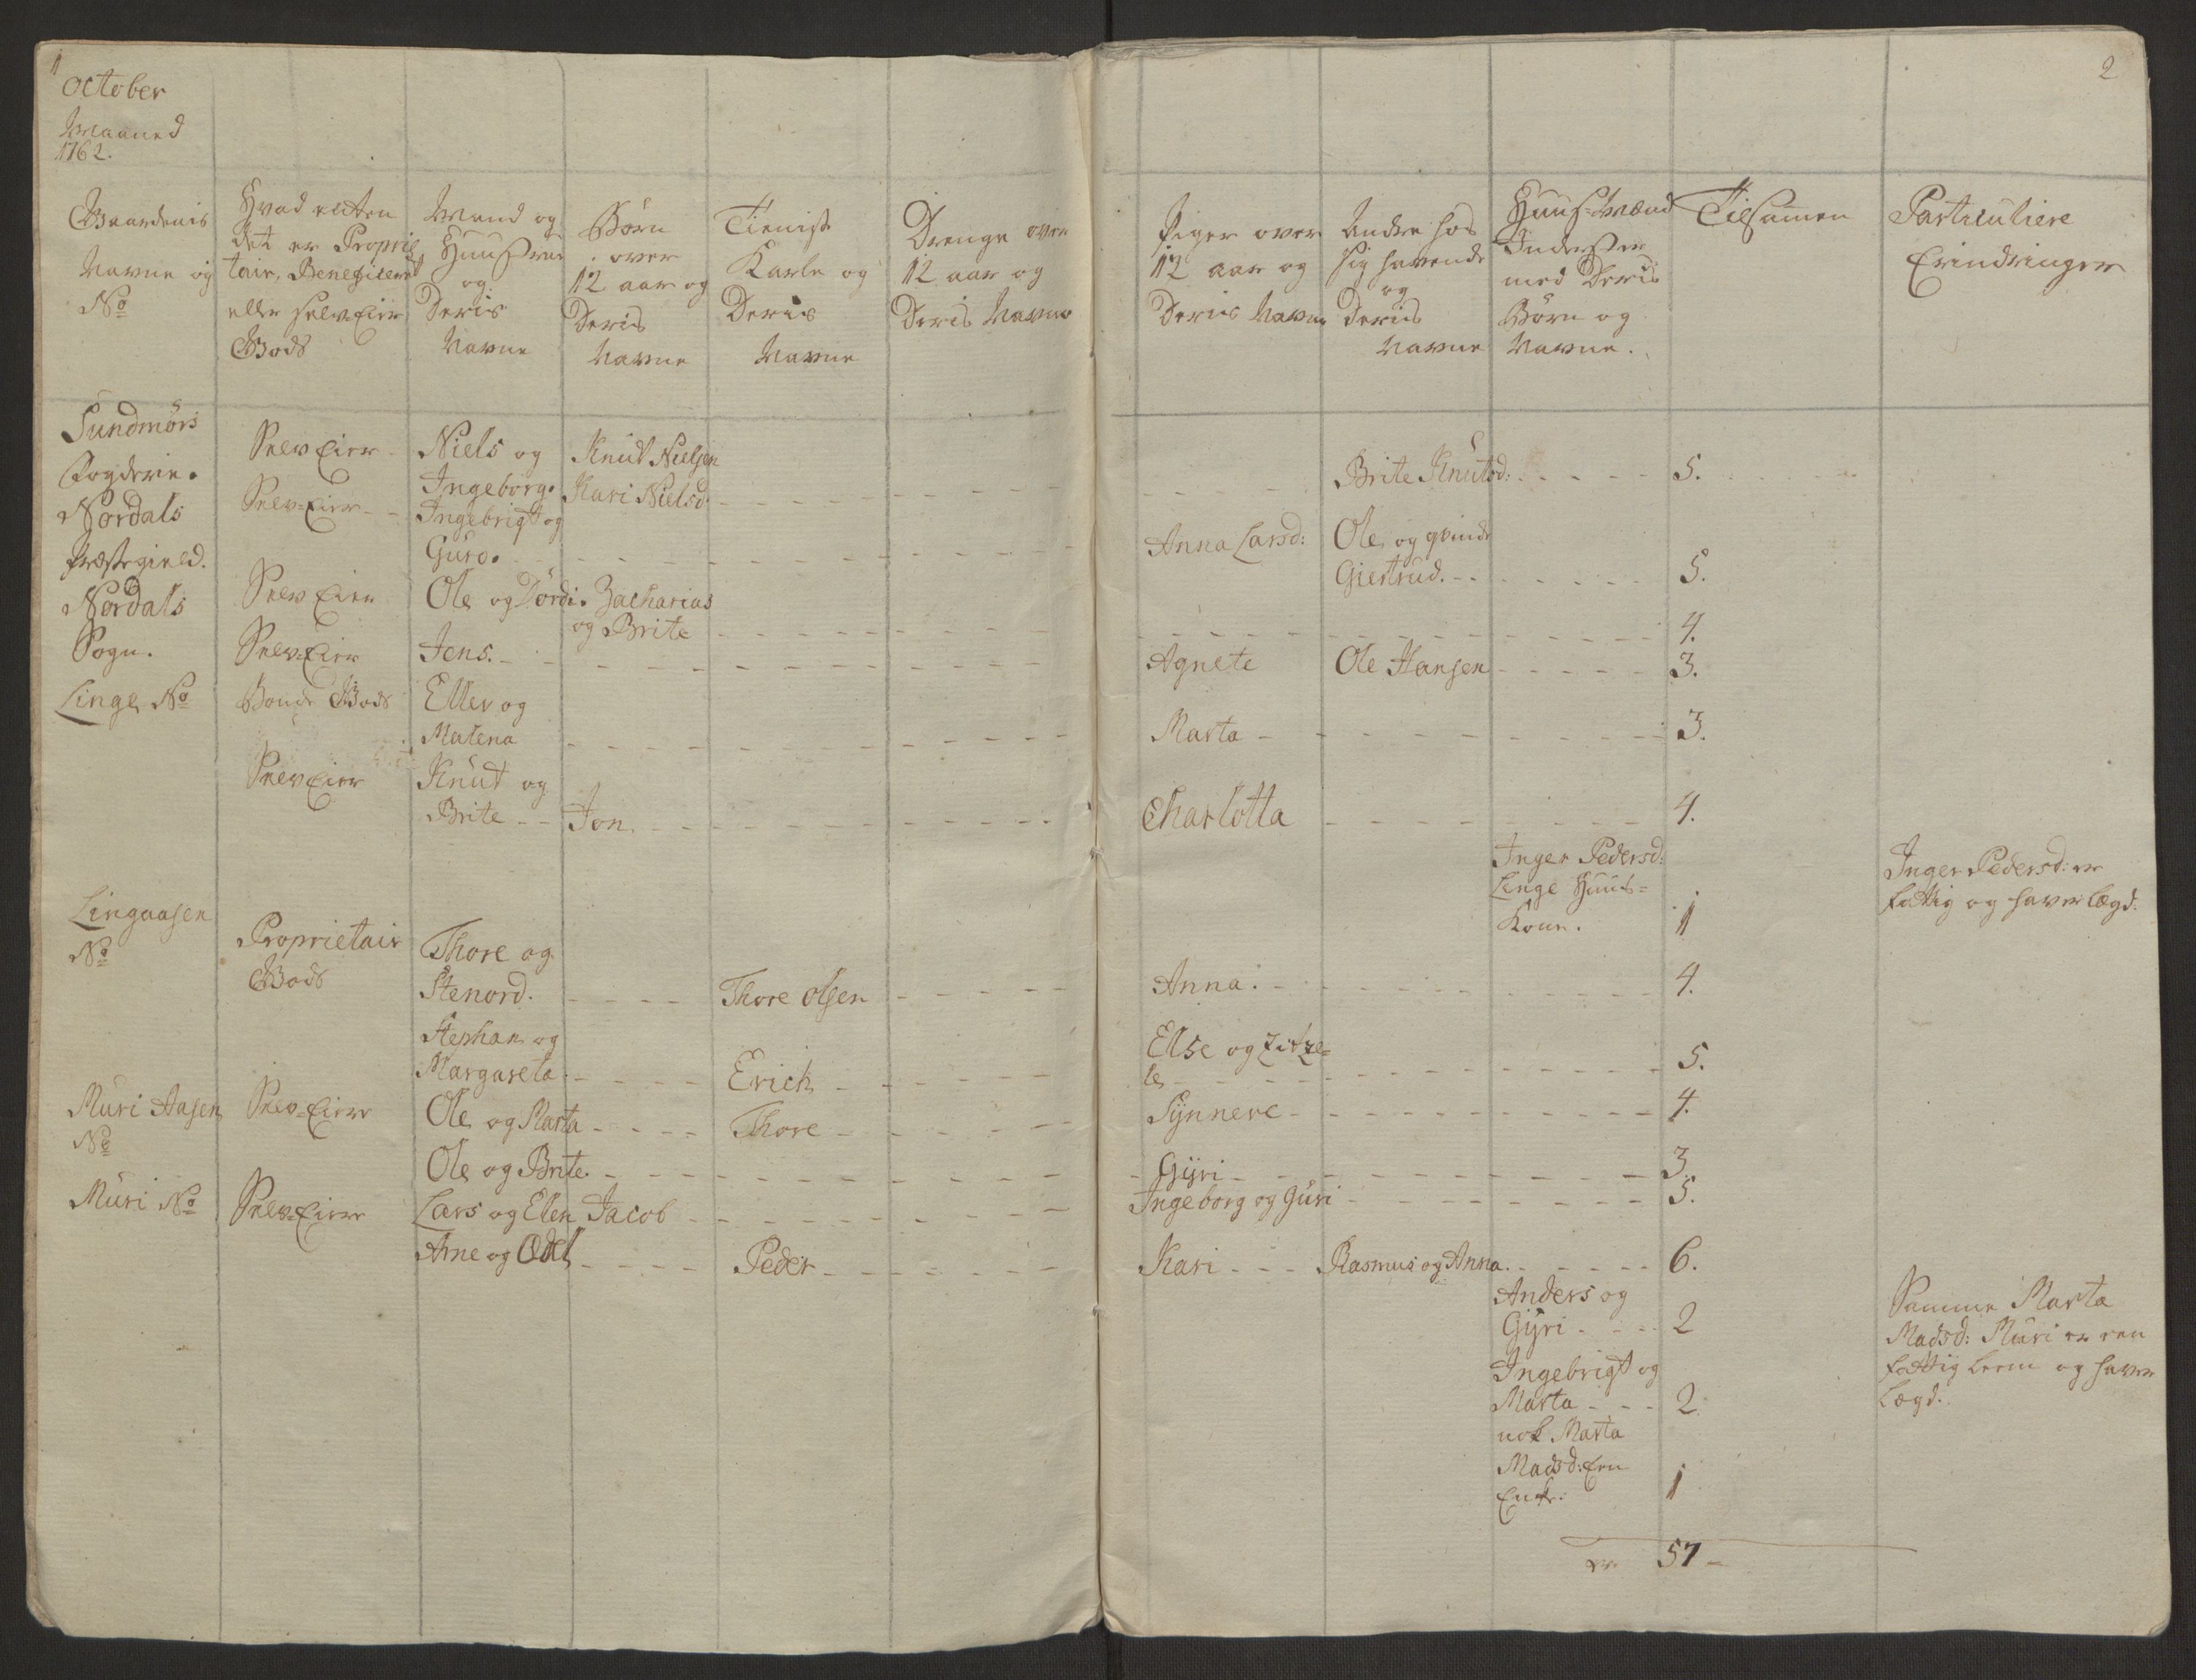 October
Maaned
1762.
2
Gaardenis
Navne og
No
Hvad enten
det er Proprie
tair, Beneficeret
eller selv-Eier
Gods
Mand og
Huustrue
og
Deris
Navne
Børn
over
12 aar og
Deris
Navne
Tieniste
Karle og
Deris
Navne
Drenge over
12 aar og
Deris Navne
Piger over
12 aar og
Deris Navne
Andre hos
sig havende
og
Deris
Navne
Huus-Mænd
Inderster
med Deris
Børn og
Navne.
Tilsamen
Particuliere
Erindringer
Sundmørs
Fogderie.
Nordals
Præstegield.
Nordals
Sogn.
Linge No
Selv Eier - Niels og Knut Nielsen
Ingeborg. Kari Nielsd. Brite Knutsd: 5.
Selv-Eier - Ingebrigt og
Guro. Anna Larsd: Ole og qvinde
Giertrud. 5.
Selv Eier Ole og Dordi. Zacharias
og Brite 4.
Selv-Eier Jens. Agnete Ole Hansen 3.
Bonde Gods Ellev og
Malena Marta 3.
Selv Eier Knut og
Brite Jon. Charlotta 4.
Inger Pedersd:
Linge Huus-
Kone. 1
Inger Pedersd: er
fattig og haver lægd.
Lingaasen
No
Proprietair
Gods
Thore og
Stenord. Thore Olsen Anna. 4.
Stephan og
Margareta. Erich Else og Zitze-
le 5.
Muri Aasen
No
Selv-Eiere Ole og Marta Thore Synnere 4.
Ole og Brite. Gyri 3.
Muri No Selv-Eiere Lars og Elen Jacob Ingeborg og Guri 5.
Arne og Odel Peder Kari Rasmus og Anna. 6.
Anders og
Gyri 2
Ingebrigt og
Marta 2
nok Marta
Madsd: Een
Enke. 1
Samme Marta
Madsd: Muri er een
fattig Leem og haver
Lægd.
57